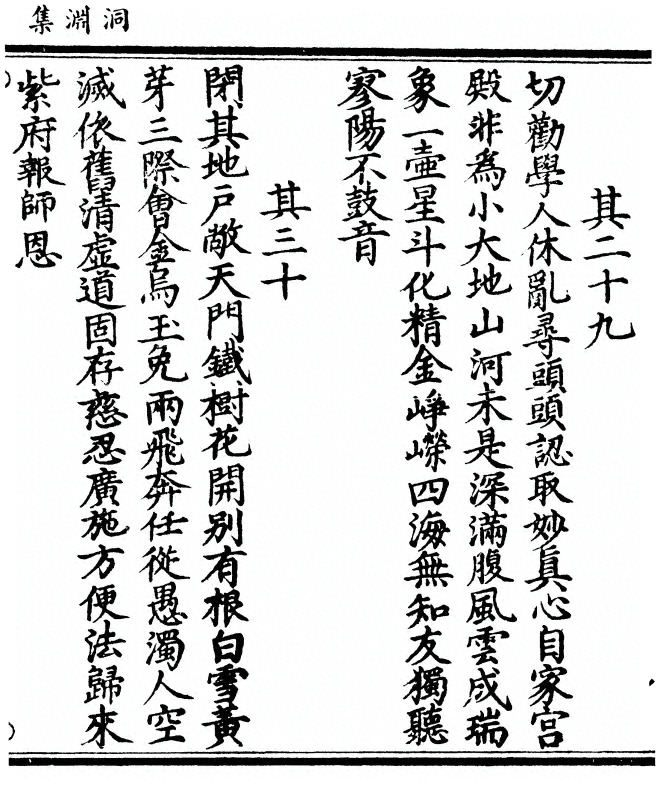 洞淵集
其二十九
切勸學人休亂尋頭頭認取妙真心自家宮
殿非為小大地山河未是深滿腹風雲成瑞
象一壺星斗化精金崢嶸四海無知友獨聽
寥陽不鼓音
其三十
閑其地戶敞天門鐵樹花開別有根白雪黃
芽三際會金烏玉兔兩飛奔任從愚濁人空
滅依舊清虛道固存慈忍廣施方便法歸來
紫府報師恩